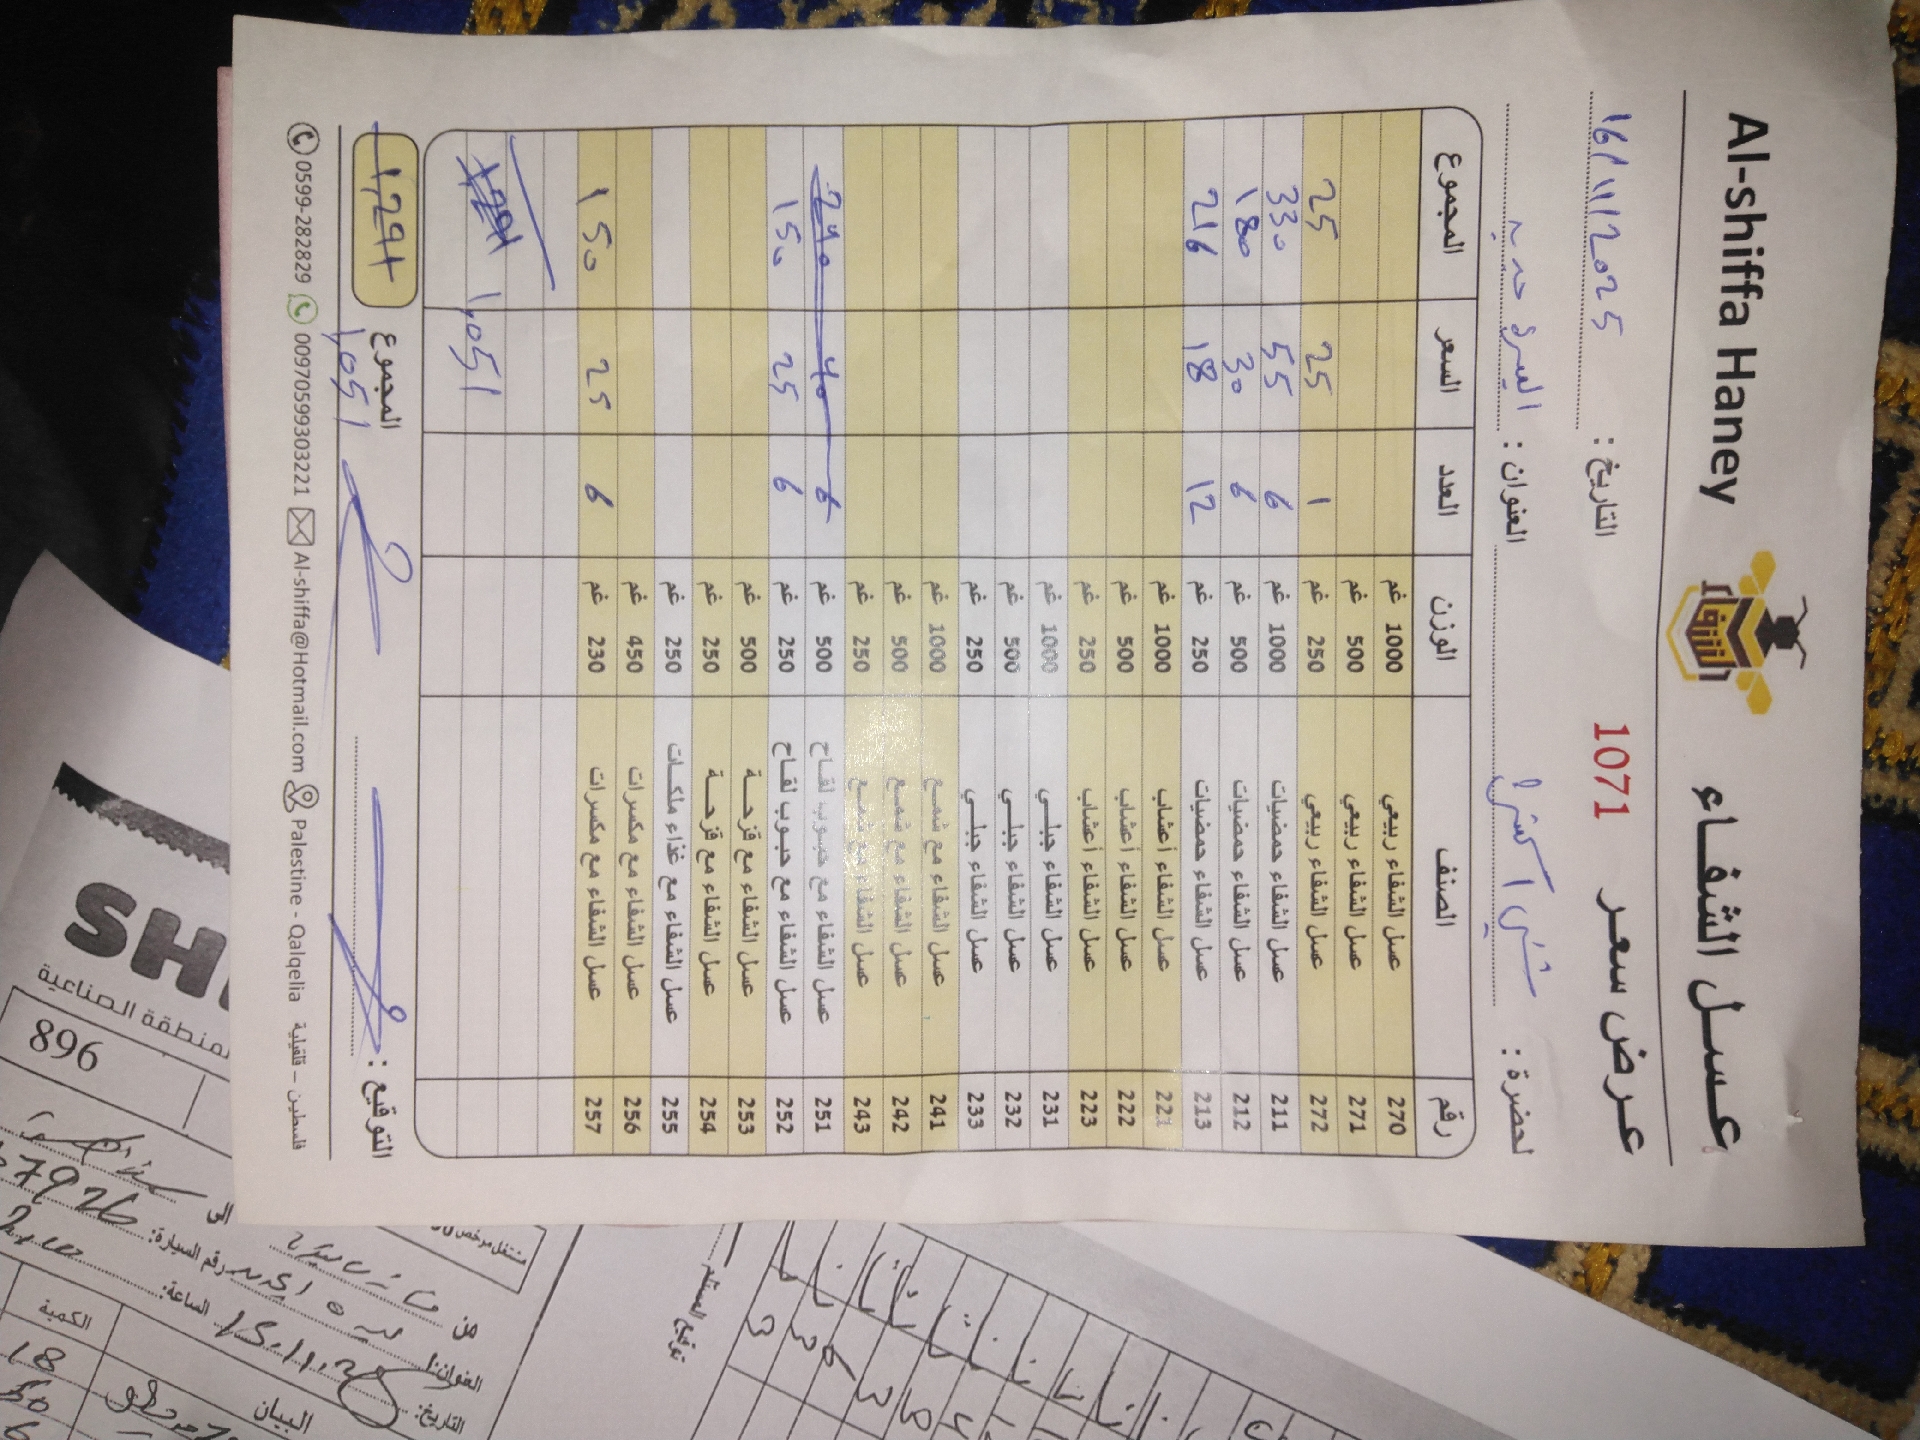 Al-shiffa Haney عسل الشفاء
عرض سعر 1071 التاريخ : 16/11/2025
لحضرة : العنوان : البيرة
رقم الصنف الوزن العدد السعر المجموع
270 عسل الشفاء ربيعي 1000 غم
271 عسل الشفاء ربيعي 500 غم
272 عسل الشفاء ربيعي 250 غم 1 25 25
211 عسل الشفاء حمضيات 1000 غم 6 55 330
212 عسل الشفاء حمضيات 500 غم 6 30 180
213 عسل الشفاء حمضيات 250 غم 12 18 216
221 عسل الشفاء أعشاب 1000 غم
222 عسل الشفاء أعشاب 500 غم
223 عسل الشفاء أعشاب 250 غم
231 عسل الشفاء جبلي 1000 غم
232 عسل الشفاء جبلي 500 غم
233 عسل الشفاء جبلي 250 غم
241 عسل الشفاء مع شمع 1000 غم
242 عسل الشفاء مع شمع 500 غم
243 عسل الشفاء مع شمع 250 غم
251 عسل الشفاء مع حبوب لقاح 500 غم 6 40 240
252 عسل الشفاء مع حبوب لقاح 250 غم 6 25 150
253 عسل الشفاء مع قزحة 500 غم
254 عسل الشفاء مع قزحة 250 غم
255 عسل الشفاء مع غذاء ملكات 250 غم
256 عسل الشفاء مع مكسرات 450 غم
257 عسل الشفاء مع مكسرات 230 غم 6 25 150
1,051
التوقيع : المجموع 1,291
1,051
0599-282829 00970599303221 Al-shiffa@Hotmail.com Palestine - Qalqelia فلسطين – قلقيلية
SH
896
الى
من
رقم السيارة: 7926
العنوان:
الساعة:
التاريخ: 15.11.25
البيان الكمية
18
50
6
مشتغل مرخص
توقيع المستلم